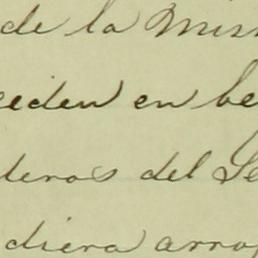 de la mism
ceden en be
deros del Se
diera arro